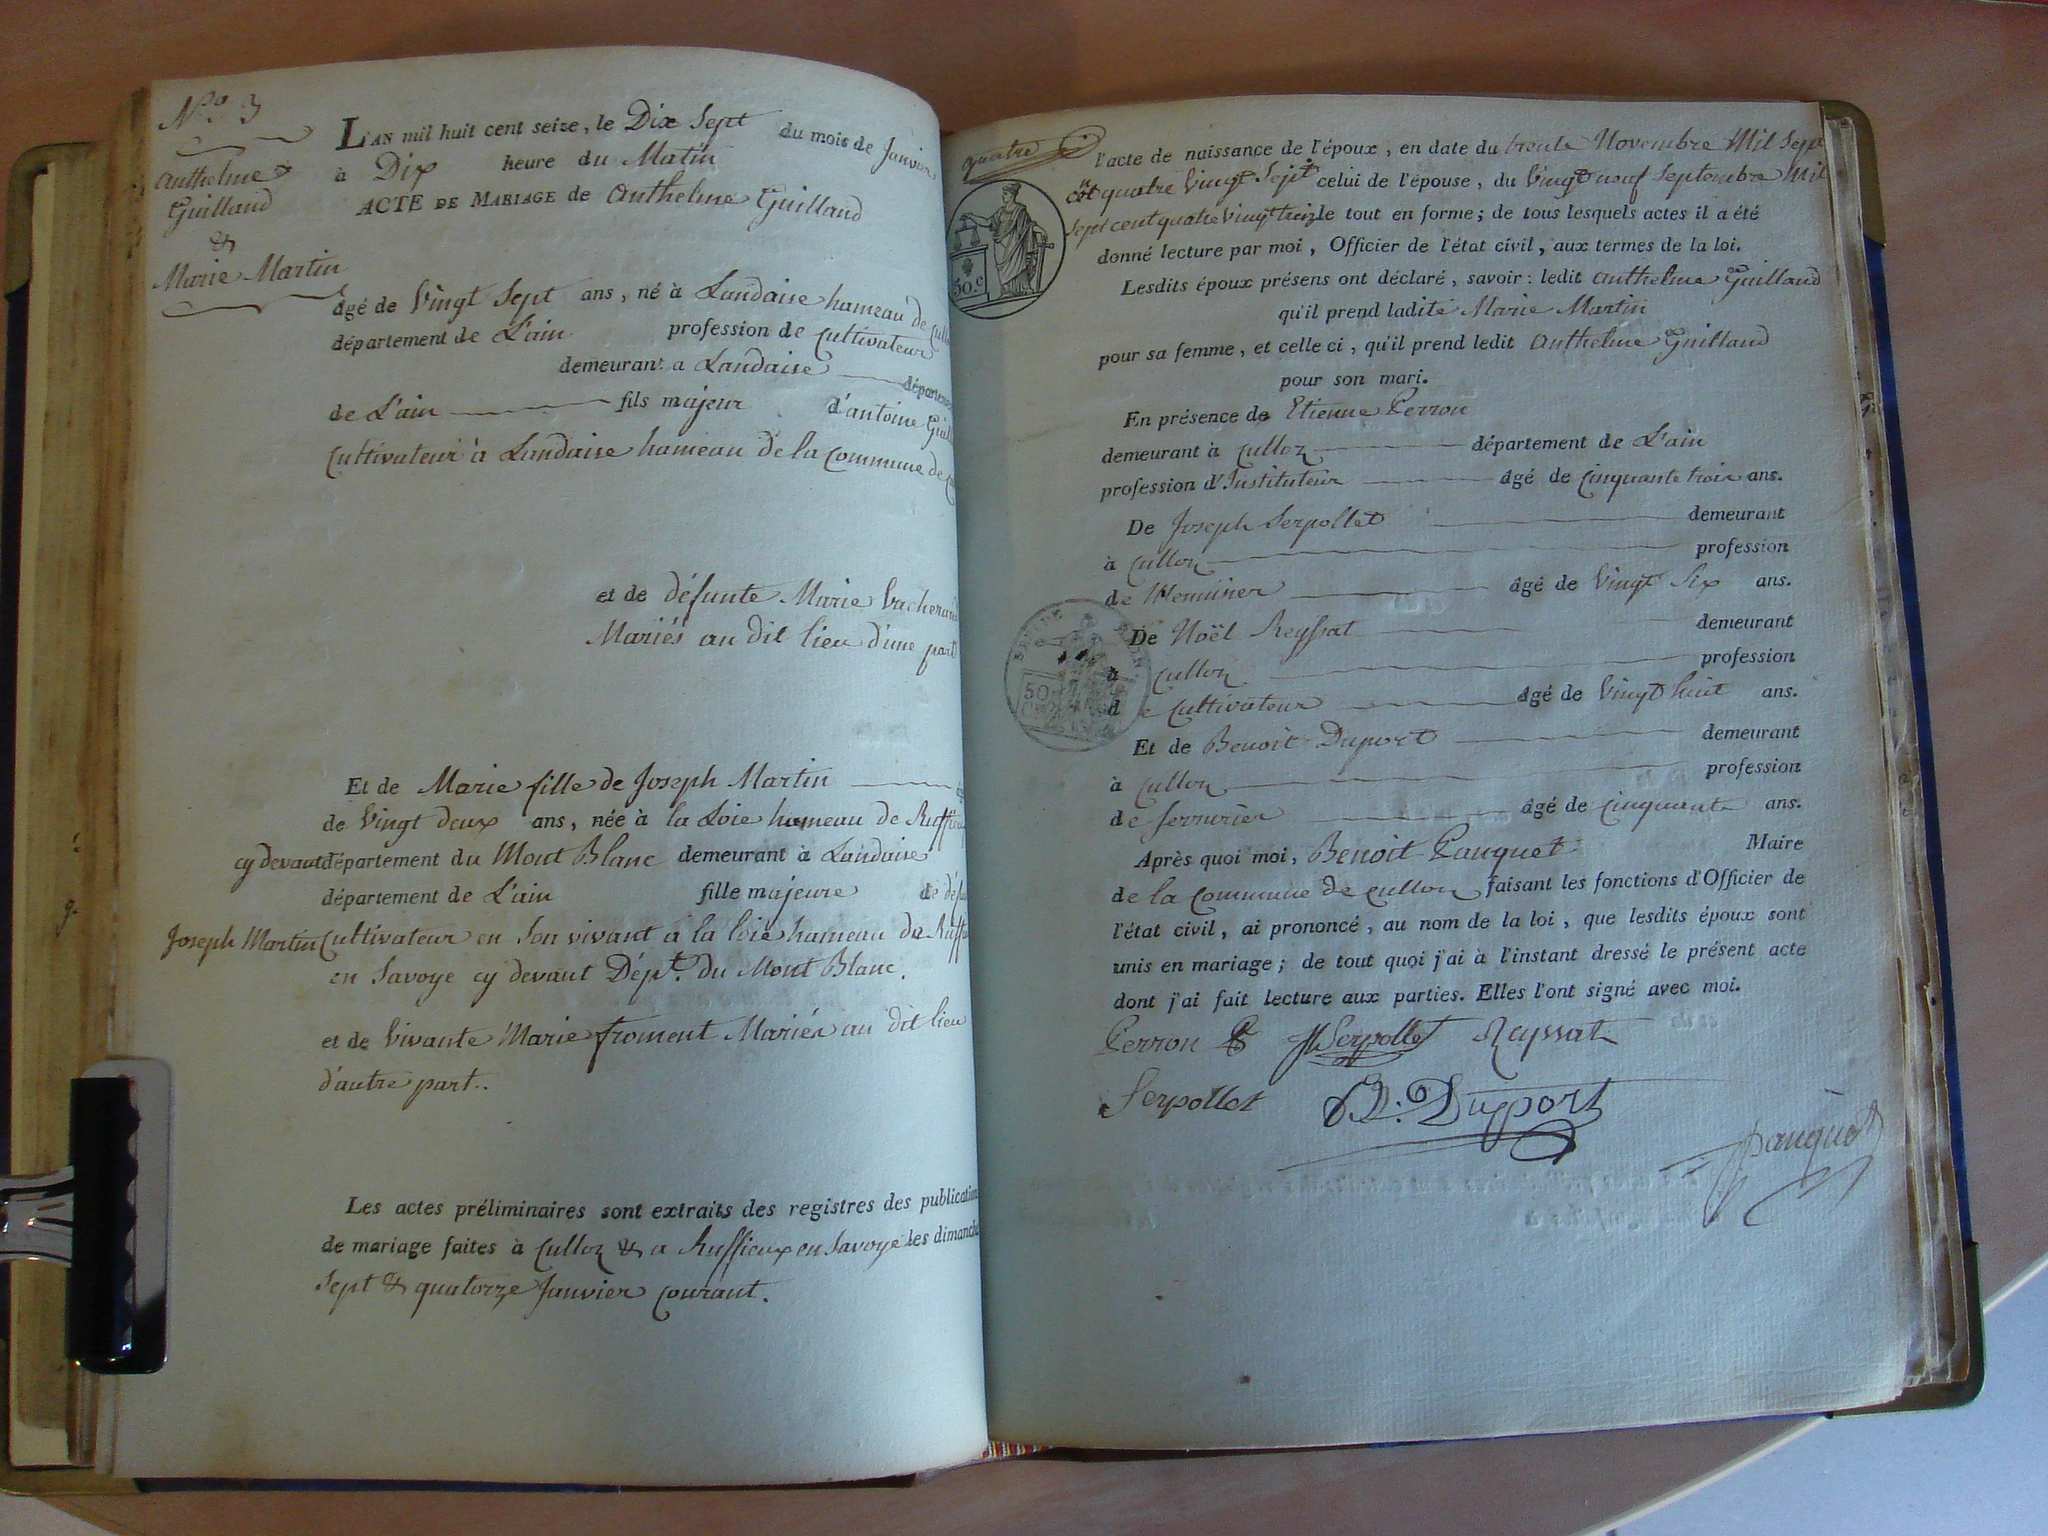 N.o 3
Anthelme
Guilland
&
Marie Martin
L'AN mil huit cent seize, le Dix Sept du mois de Janvier
à Dix heure du Matin
ACTE DE MARIAGE de Anthelme Guilland
âgé de Vingt Sept ans, né à Landaise hameau de
département de L'ain profession de Cultivateur
demeurant a Landaise département
de L'ain fils majeur d'antoine
Cultivateur à Landaise hameau de la Commune de
et de défunte Marie
Mariés au dit lieu d'une part
Et de Marie fille de Joseph Martin
de Vingt deux ans, née à la Loie hameau de
cy devant département du Mont Blanc demeurant à Landaise
département de L'ain fille majeure de
Joseph Martin Cultivateur en Son vivant à la loie hameau de
en Savoye cy devant Dépt. du Mont Blanc.
et de Vivante Marie froment Mariés au dit lieu
d'autre part..
Les actes préliminaires sont extraits des registres des publication
de mariage faites à Culloz & a Ruffieux en Savoye les dimanche
Sept & quatorze Janvier Courant.
quatre
50.c
l'acte de naissance de l'époux, en date du trente Novembre Mil Sept
cent quatre Vingt Sept celui de l'épouse, du Vingt neuf Septembre Mil
Sept cent quatre Vingt treize le tout en forme; de tous lesquels actes il a été
donné lecture par moi, Officier de l'état civil, aux termes de la loi.
Lesdits époux présens ont déclaré, savoir: ledit Anthelme Guilland
qu'il prend ladite Marie Martin
pour sa femme, et celle ci, qu'il prend ledit Anthelme Guilland
pour son mari.
En présence de Etienne Perron
demeurant à Culloz département de L'ain
profession d'Instituteur âgé de Cinquante trois ans.
De Joseph Serpollet demeurant
à Culloz profession
de Menuisier âgé de Vingt Six ans.
De Noël Reyssat demeurant
à Culloz profession
de Cultivateur âgé de Vingt huit ans.
50
Et de Benoit Duport demeurant
à Culloz profession
de Serrurier âgé de Cinquante ans.
Après quoi moi, Benoit Pauquet Maire
de la Commune de Culloz faisant les fonctions d'Officier de
l'état civil, ai prononcé, au nom de la loi, que lesdits époux sont
unis en mariage; de tout quoi j'ai à l'instant dressé le présent acte
dont j'ai fait lecture aux parties. Elles l'ont signé avec moi.
Perron Serpollet Reyssat
Serpollet Duport
Pauquet